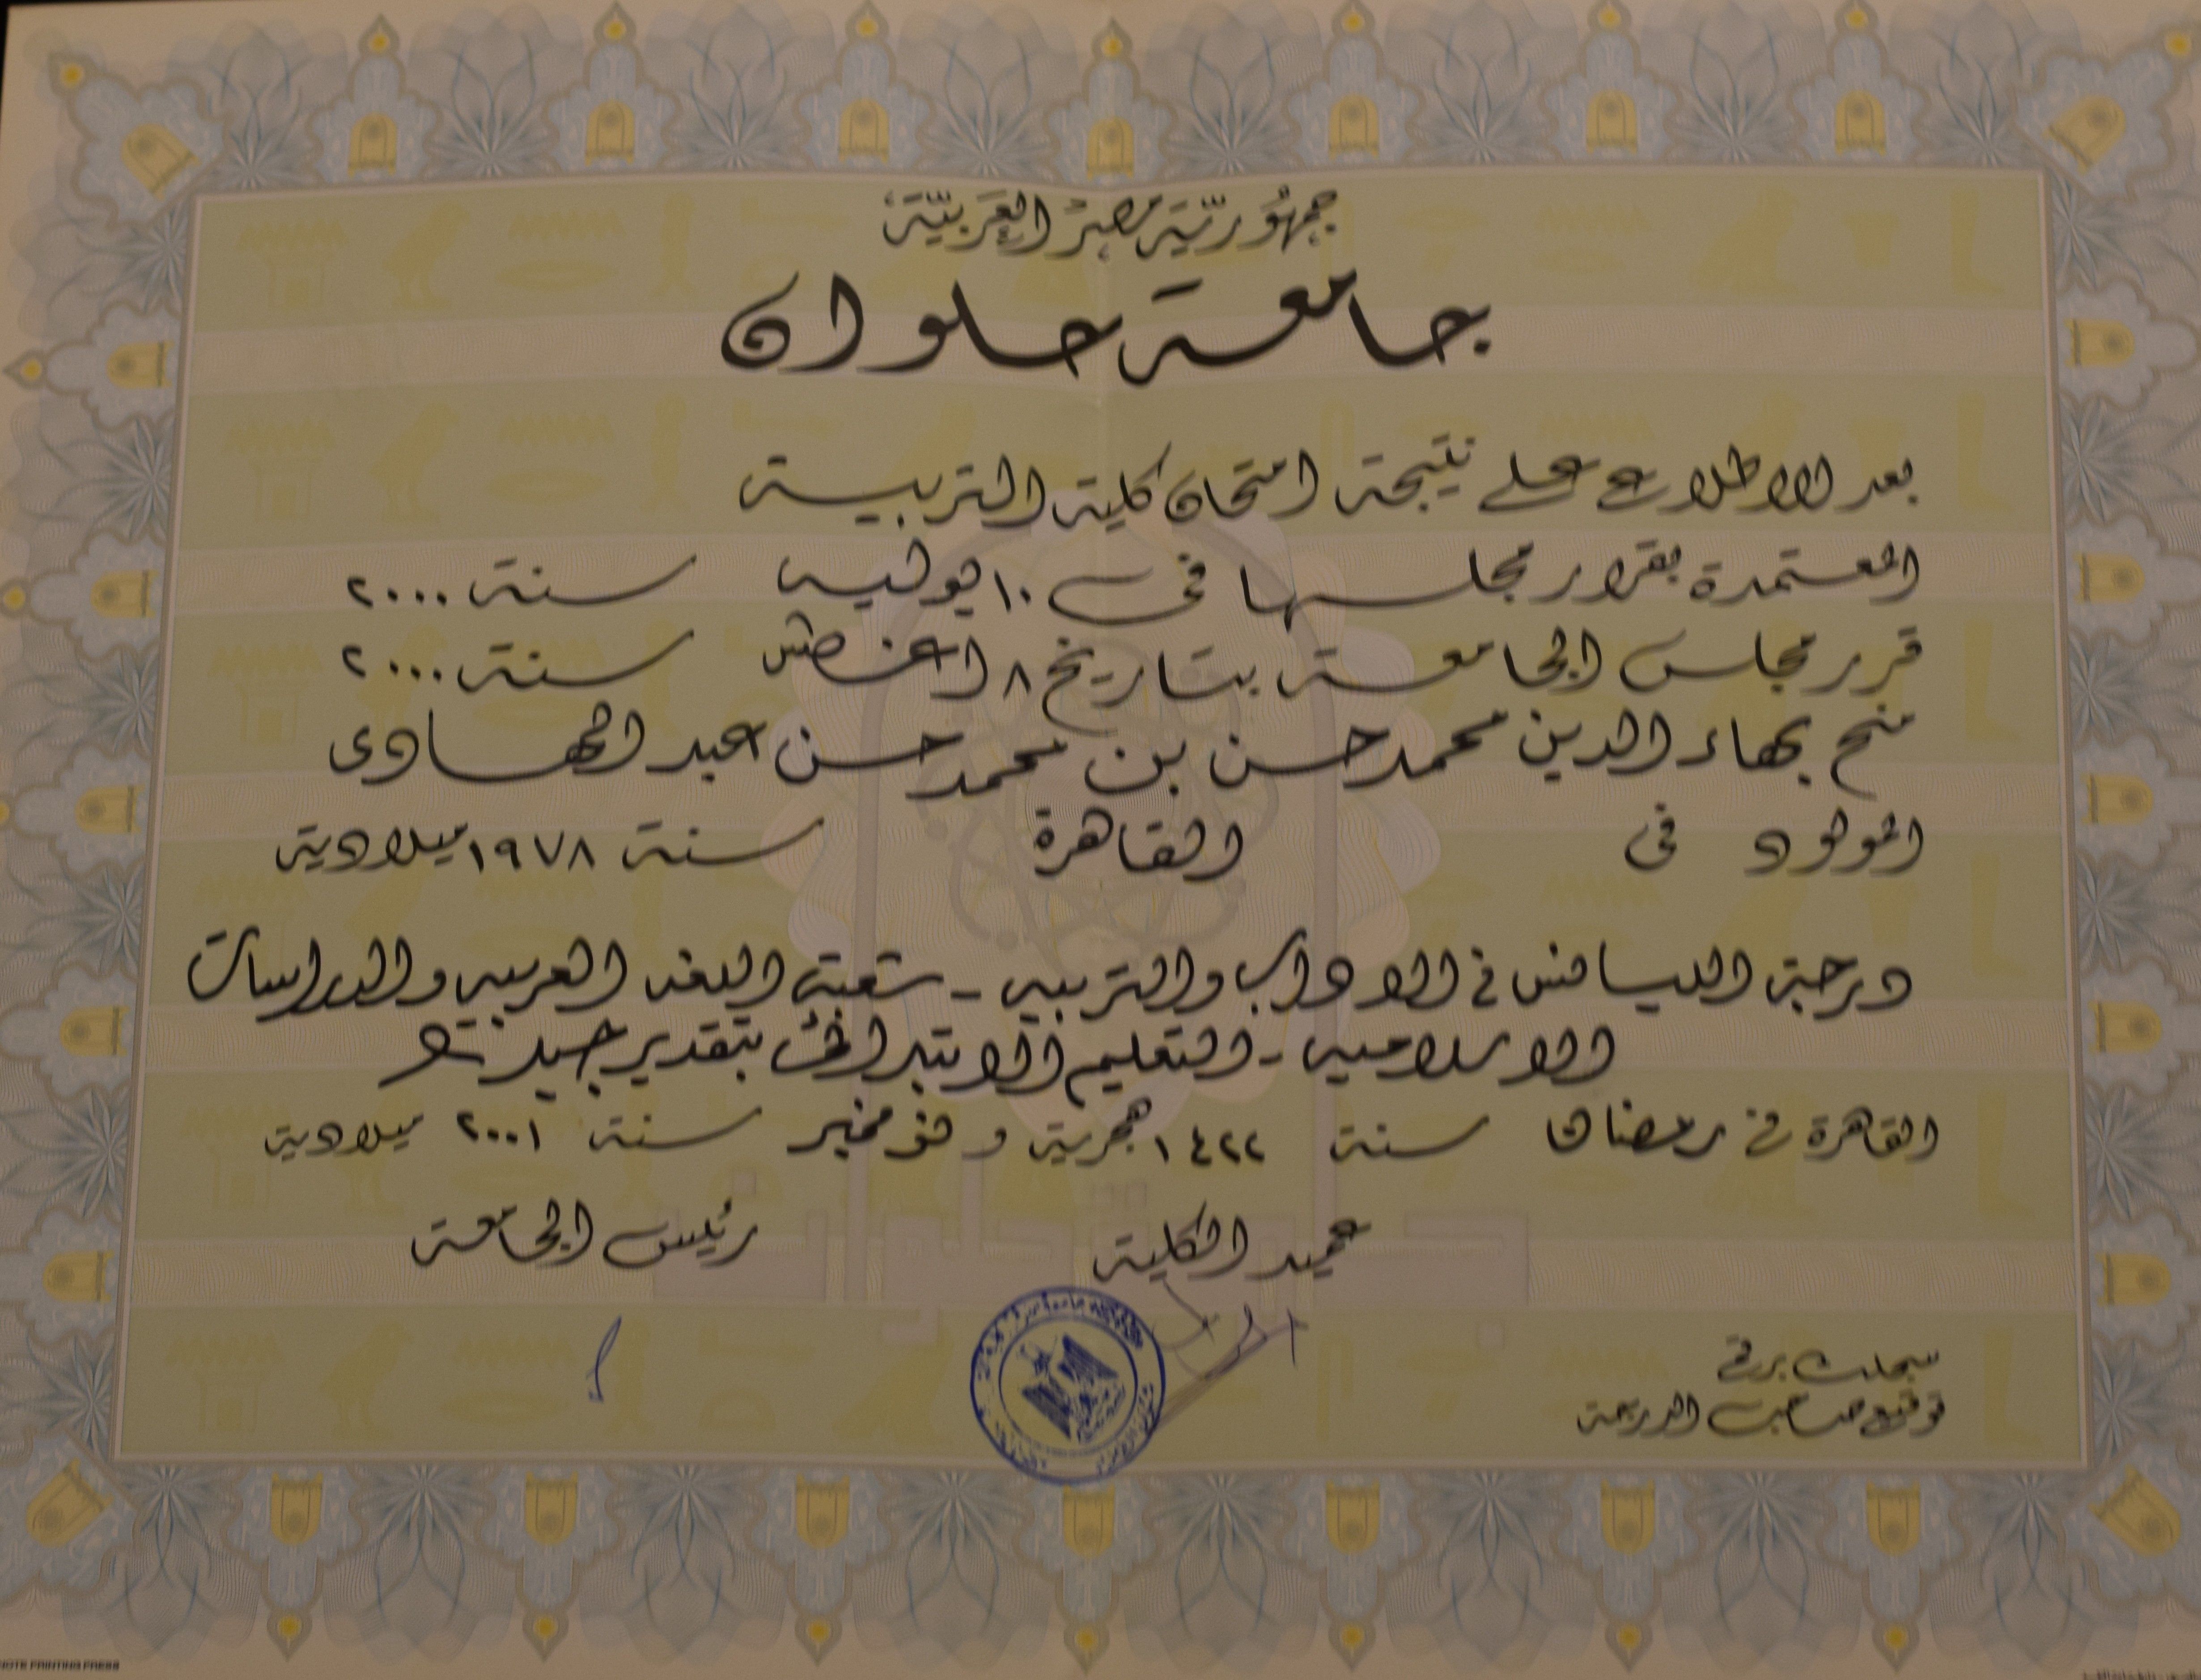 جمهُوريّة مصرْ العَربيّة
جامعة حلوان
بعد الاطلاع على نتيجة امتحان كلية التربية
المعتمدة بقرار مجلسها فى ١٠ يوليه سنة ٢٠٠٠
قرر مجلس الجامعة بتاريخ ٨ اغسطس سنة ٢٠٠٠
منح بهاء الدين محمد حسن بن محمد حسن عبد الهادى
المولود فى القاهرة سنة ١٩٧٨ ميلادية
درجة الليسانس فى الاداب والتربيه - شعبة اللغه العربيه والدراسات
الاسلاميه - التعليم الابتدائى بتقدير جيد
القاهرة فى رمضان سنة ١٤٢٢ هجرية و نوفمبر سنة ٢٠٠١ ميلادية
عميد الكلية رئيس الجامعة
سجلت برقم
توقيع صاحب الدرجة
NOTE PRINTING PRESS